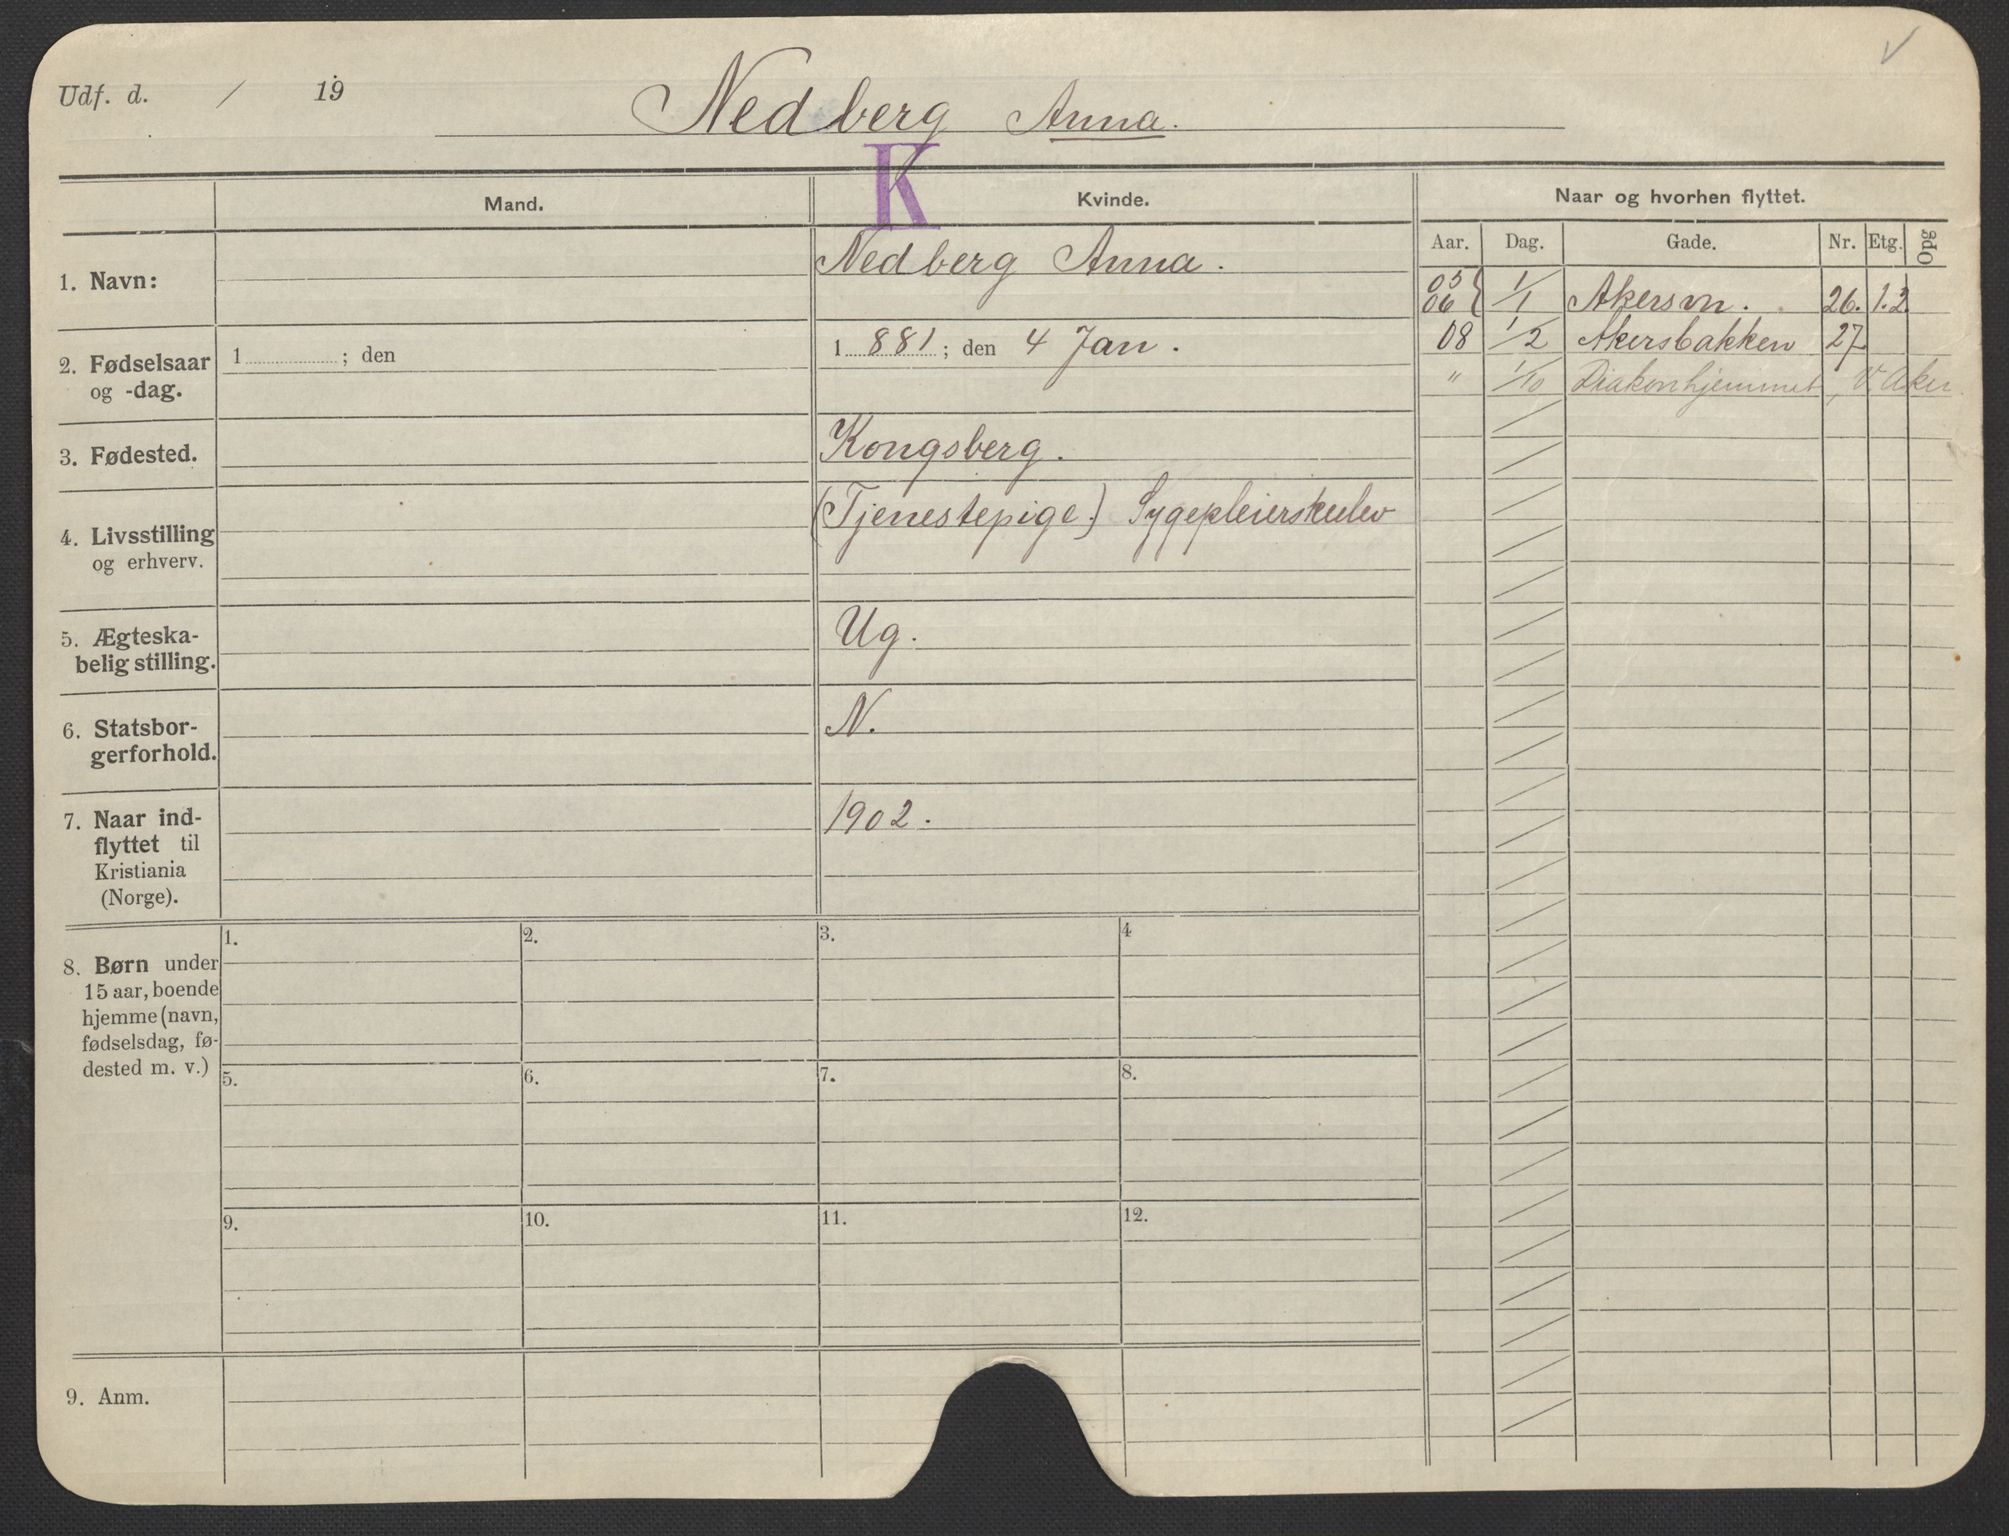 Udf. d. / 19
Nedberg Anna.
K
Mand.
Kvinde.
Naar og hvorhen flyttet.
Aar. Dag. Gade. Nr. Etg. Opg
1. Navn:
Nedberg Anna.
05 06 { 1/1 Akersvn. 26. 1.2
08 1/2 Akersbakken 27
" 1/10 Diakonhjemmet, V. Aker
2. Fødselsaar
og -dag.
1 ; den
1 881 ; den 4 Jan.
3. Fødested.
Kongsberg.
4. Livsstilling
og erhverv.
(Tjenestepige.) Sygepleierskeelev
5. Ægteska-
belig stilling.
Ug.
6. Statsbor-
gerforhold.
N.
7. Naar ind-
flyttet til
Kristiania
(Norge).
1902.
8. Børn under
15 aar, boende
hjemme (navn,
fødselsdag, fø-
dested m. v.)
1. 2. 3. 4
5. 6. 7. 8.
9. 10. 11. 12.
9. Anm.